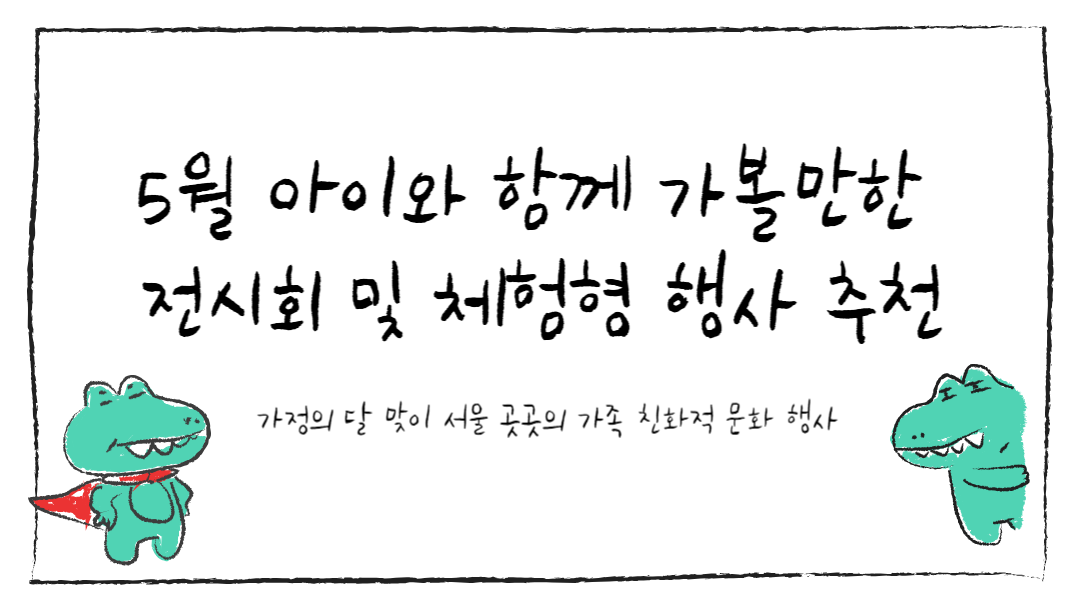 5월 아이와 함께 가볼만한
전시회 및 체험형 행사 추천
가정의 달 맞이 서울 곳곳의 가족 친화적 문화 행사